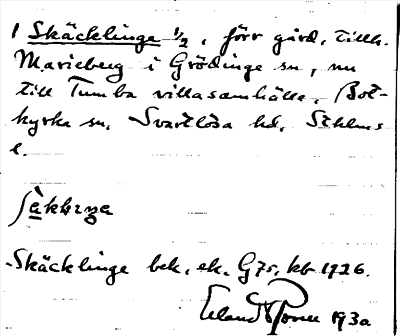 1 Skäcklinge 1/2, förr gård, tillh.
Marieberg i Grödinge sn, nu
till Tumba villasamhälle, Bot-
kyrka sn. Svartlösa hd. Sthlms
l.
Skäcklinge bek. ek. G75, kb 1726.
Erland 1930